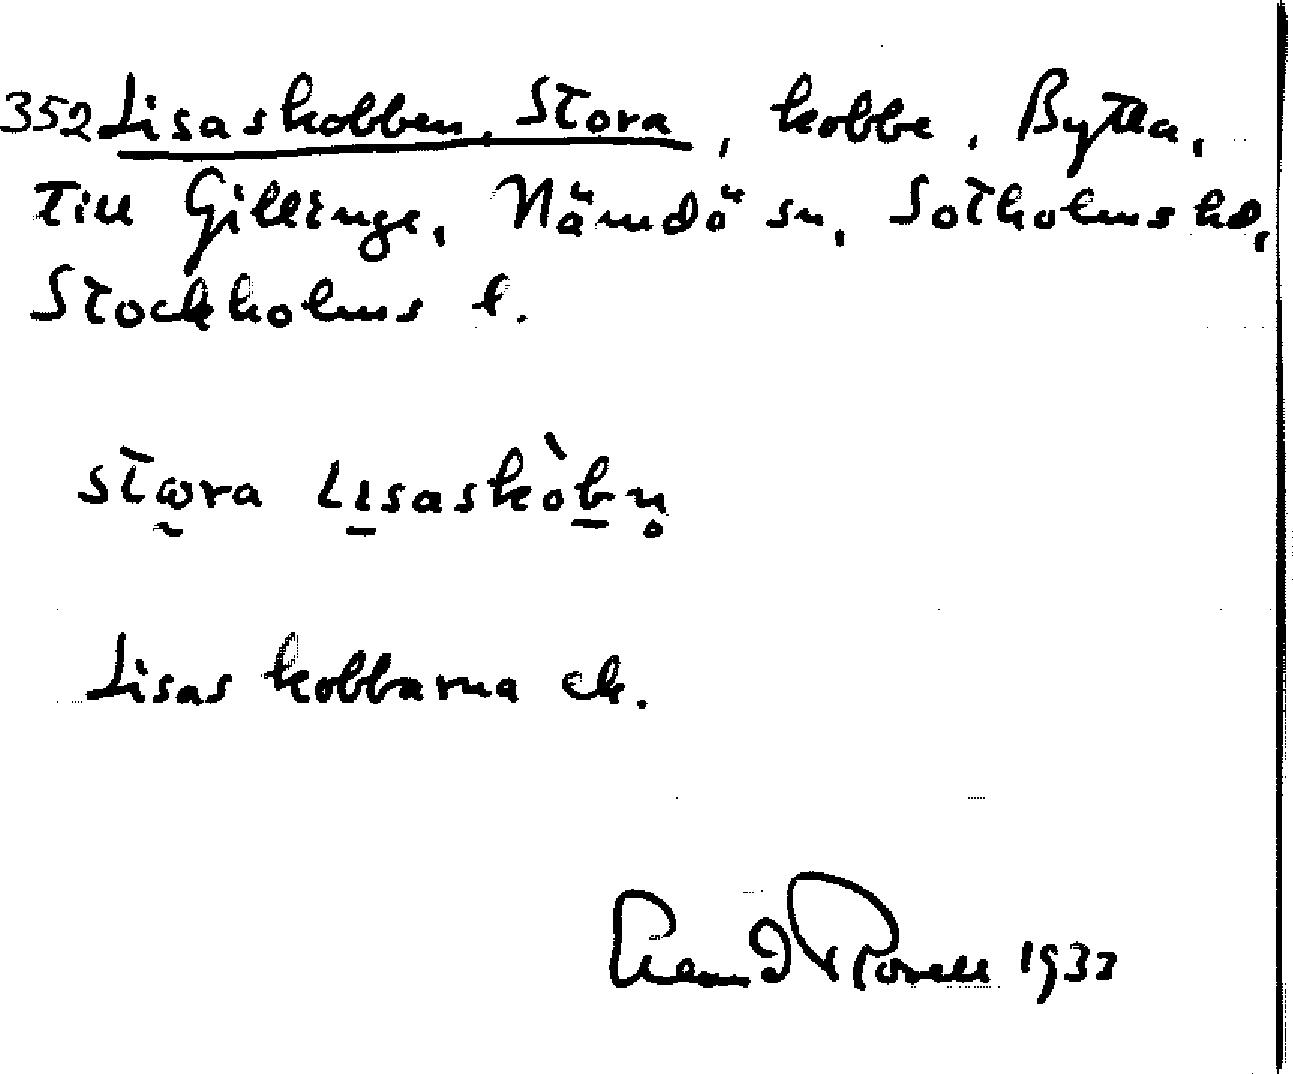 352 Lisaskobben, Stora, kobbe, Bytta,
till Gillinge, Nämdö sn, Sotholms hd,
Stockholms l.
stɷra lɪsaskòbn̥
Lisas kobbarna ek.
1932